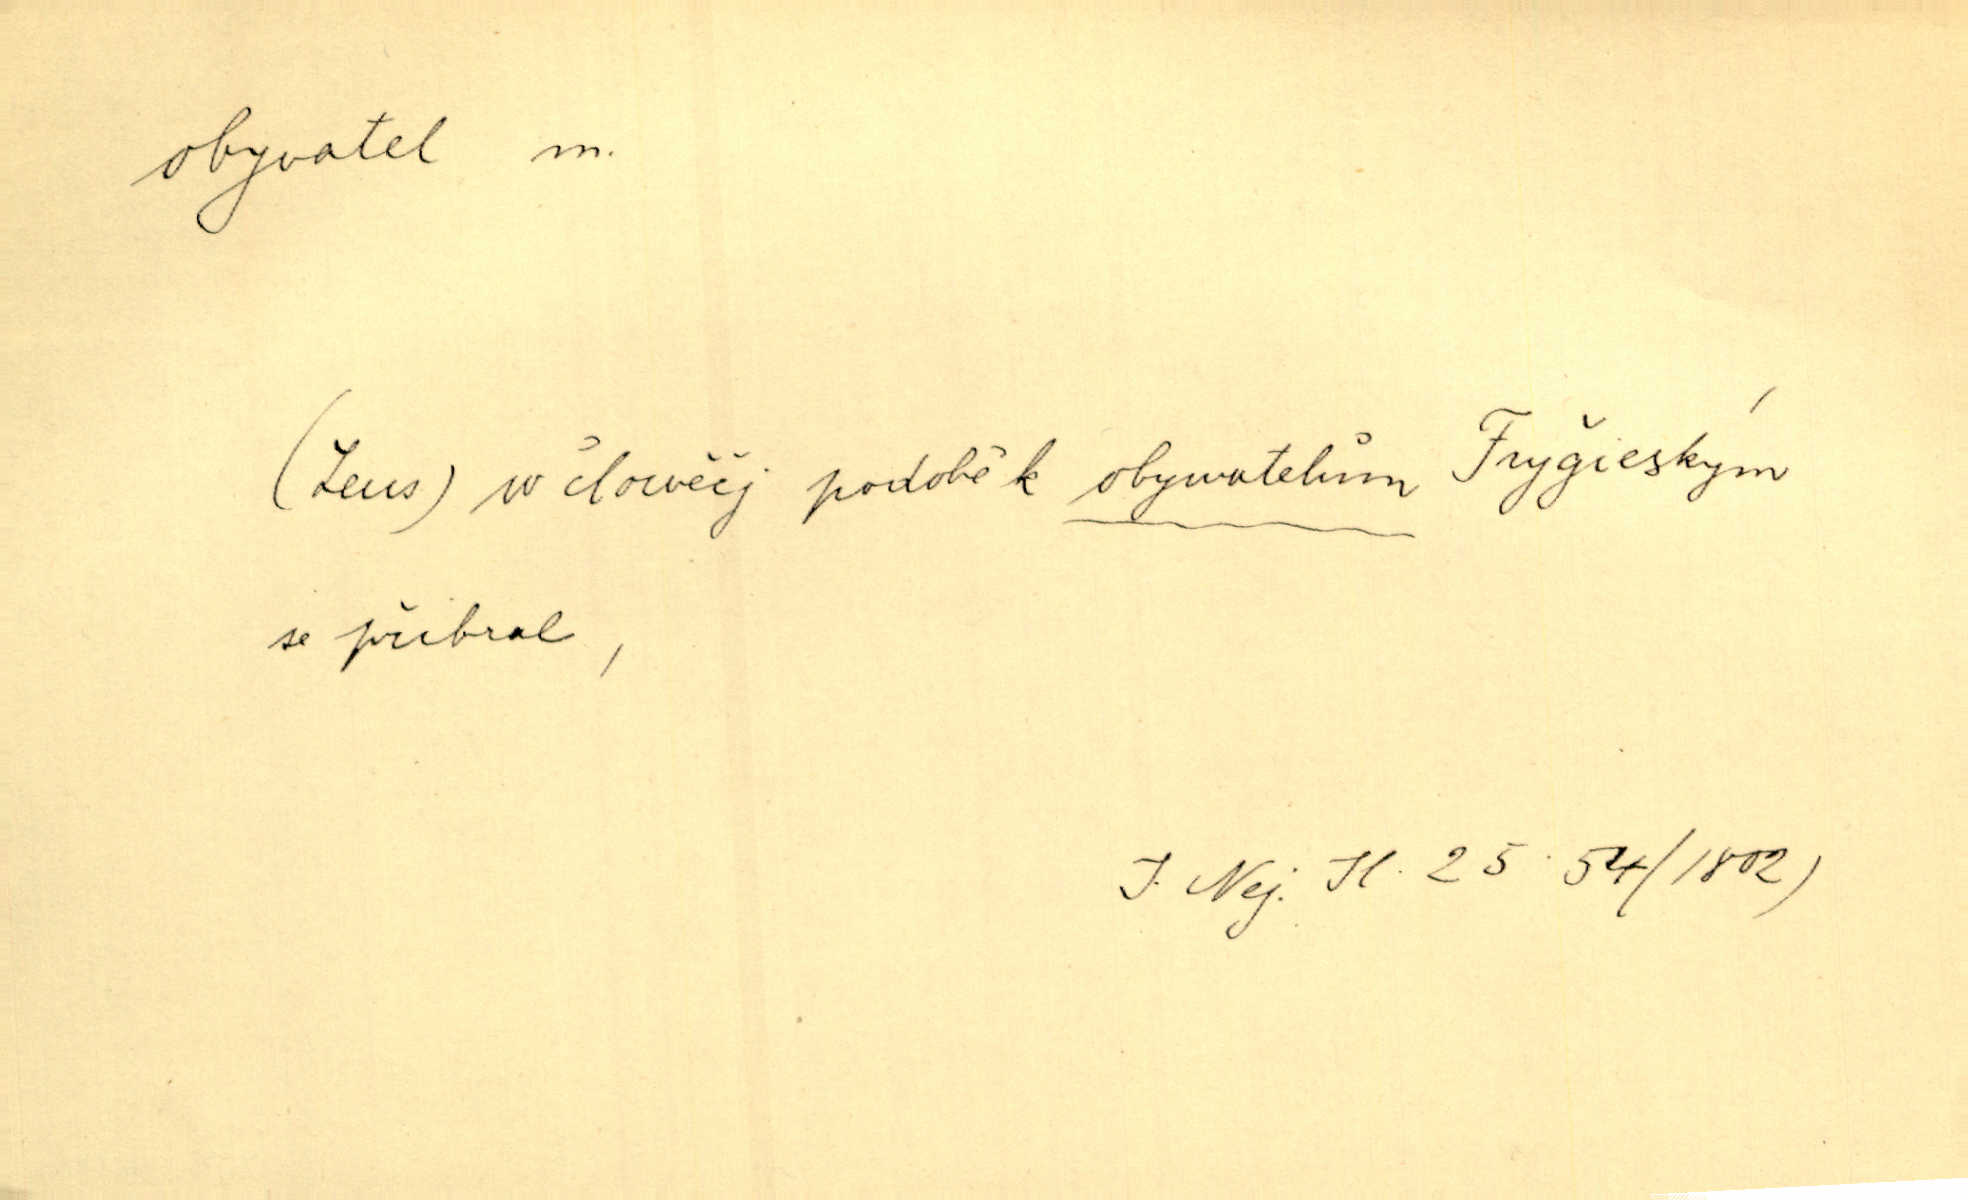 obyvatel m.
(Zeus) w člowěčj podobě k obywatelům Frygǐeským
se přibral,
J. Nej. H. 25 54/1802)